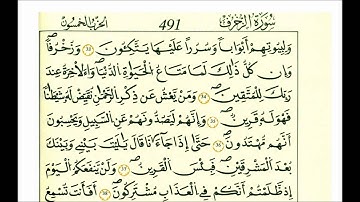 سُورَةُ الزُّخْرُفِ 491 الحِزْبُ الخَمْسُونَ
وَلِبُيُوتِهِمْ أَبْوَابًا وَسُرُرًا عَلَيْهَا يَتَّكِئُونَ ۝ وَزُخْرُفًا
وَإِن كُلُّ ذَٰلِكَ لَمَّا مَتَاعُ الْحَيَوٰةِ الدُّنْيَا وَالْآخِرَةُ عِندَ
رَبِّكَ لِلْمُتَّقِينَ ۝ وَمَن يَعْشُ عَن ذِكْرِ الرَّحْمَٰنِ نُقَيِّضْ لَهُ شَيْطَانًا
فَهُوَ لَهُ قَرِينٌ ۝ وَإِنَّهُمْ لَيَصُدُّونَهُمْ عَنِ السَّبِيلِ وَيَحْسَبُونَ
أَنَّهُم مُّهْتَدُونَ ۝ حَتَّىٰ إِذَا جَاءَنَا قَالَ يَا لَيْتَ بَيْنِي وَبَيْنَكَ
بُعْدَ الْمَشْرِقَيْنِ فَبِئْسَ الْقَرِينُ ۝ وَلَن يَنفَعَكُمُ الْيَوْمَ
إِذ ظَّلَمْتُمْ أَنَّكُمْ فِي الْعَذَابِ مُشْتَرِكُونَ ۝ أَفَأَنتَ تُسْمِعُ